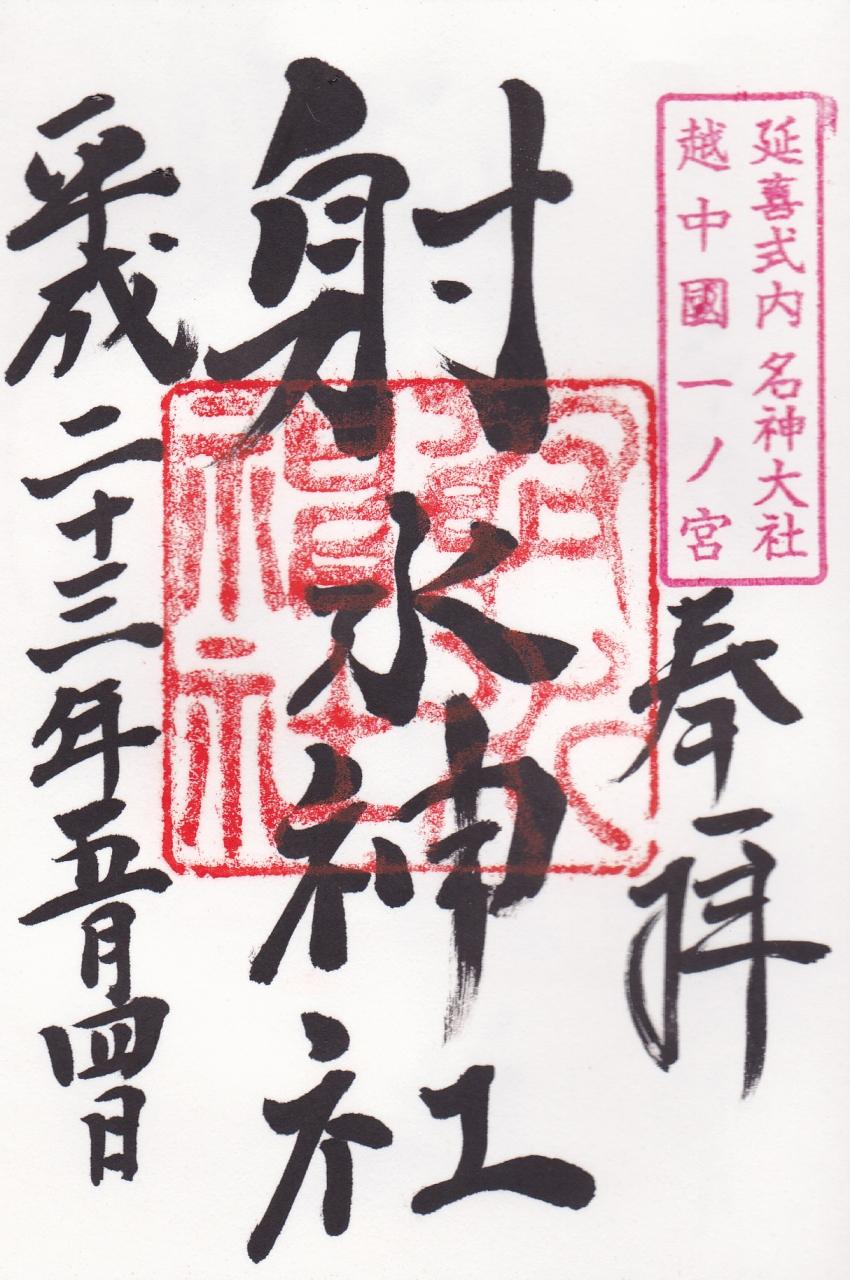 延喜式内名神大社
越中國一ノ宮
奉拝
射水神社
平成二十三年五月四日